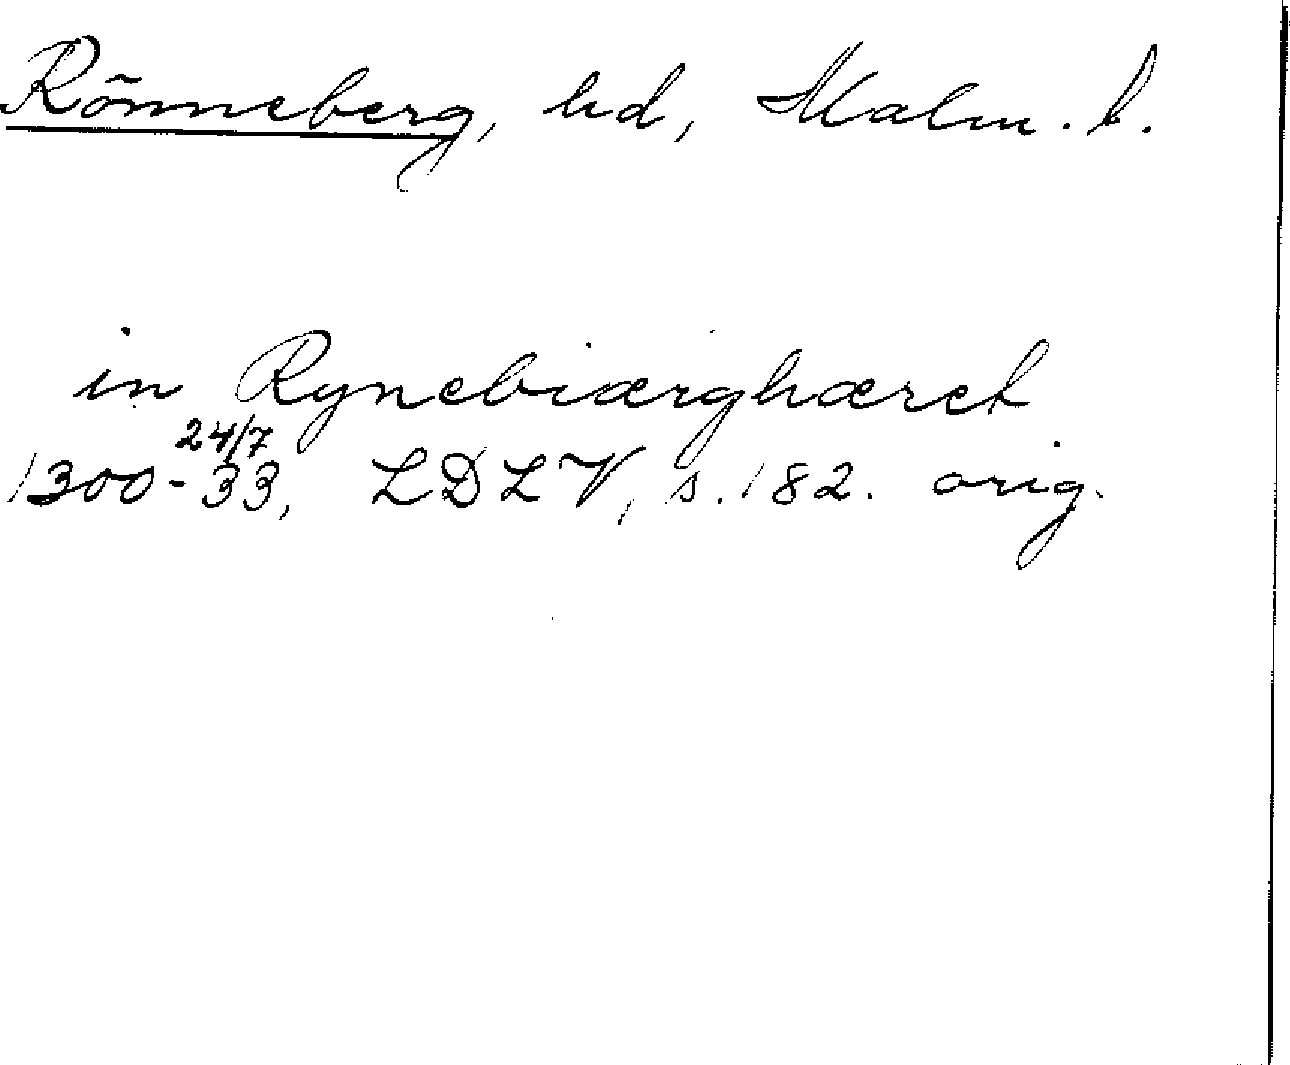 Rönneberg, hd, Malm. l.
in Rynebiærghæret
24/7
1300-33, LDLV, s. 182. orig.